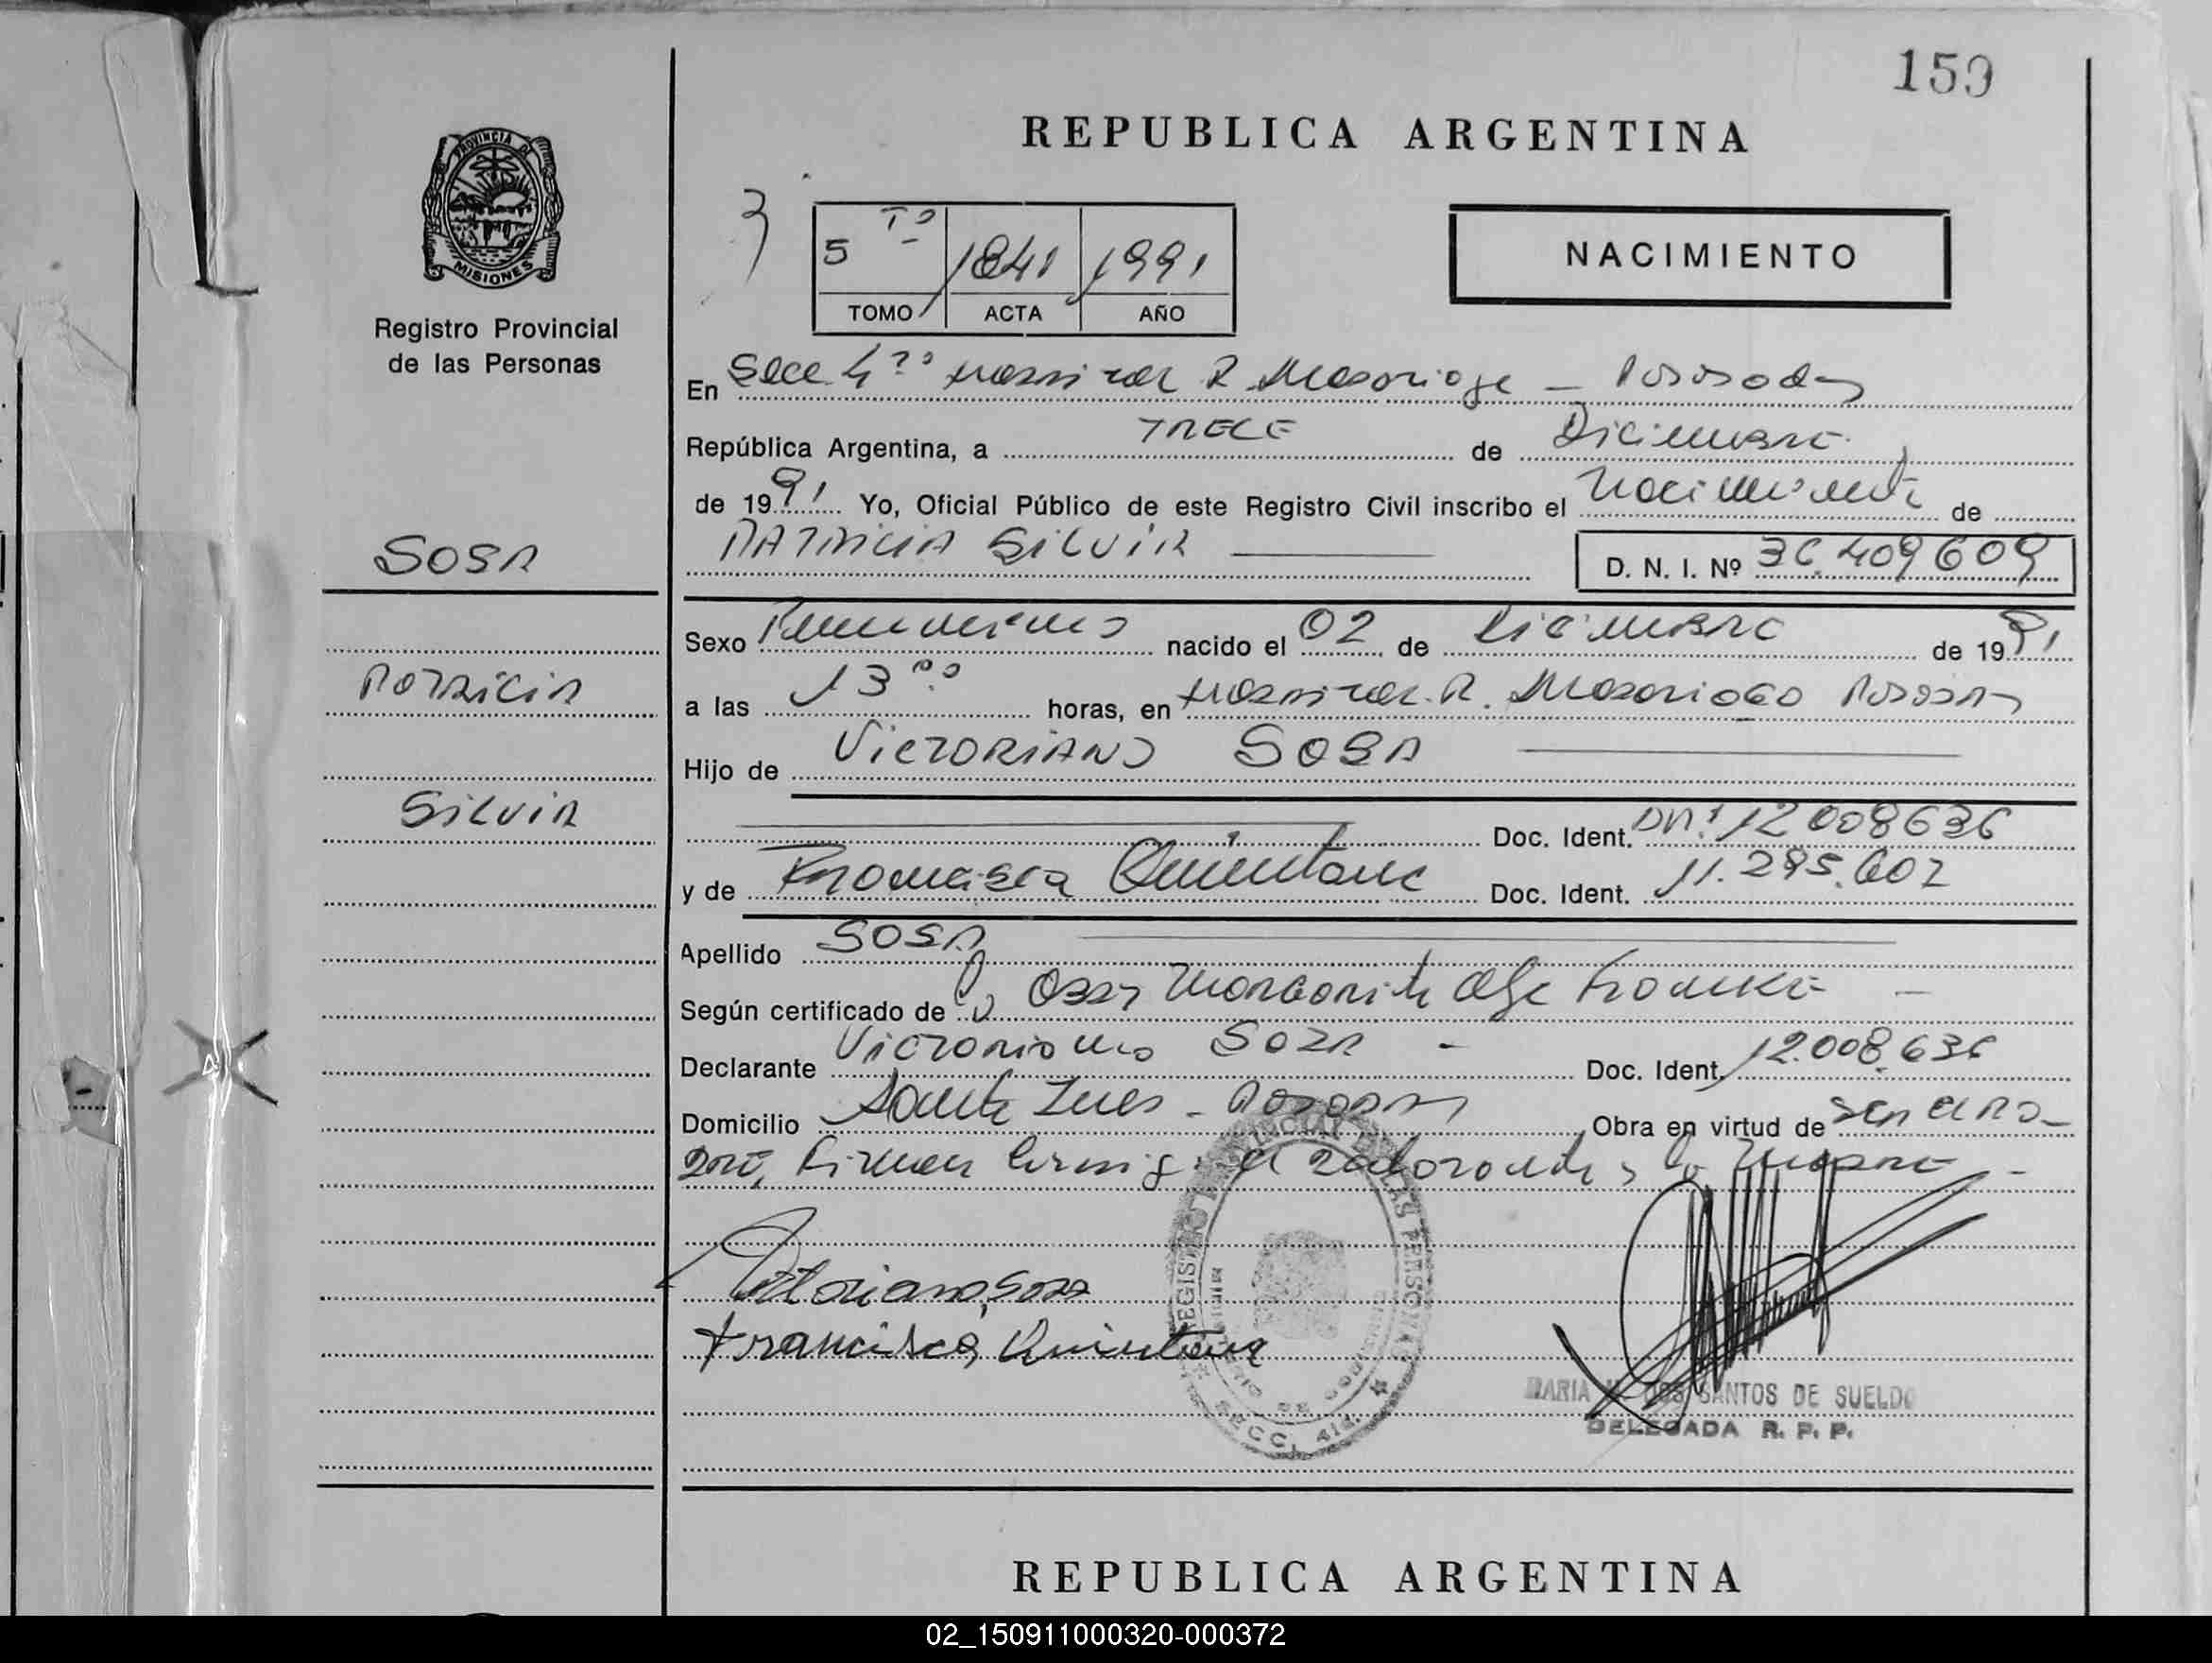 159
REPUBLICA ARGENTINA
PROVINCIA DE
MISIONES
Registro Provincial
de las Personas
NACIMIENTO
5 Tº 1841 1991
TOMO ACTA AÑO
En Secc 4ª Hospital R Madariaga – Posadas
República Argentina, a TRECE de Diciembre
de 1991 Yo, Oficial Público de este Registro Civil inscribo el Nacimiento de
PATRICIA SILVIA D. N. I. Nº 36.409609
SOSA
PATRICIA
SILVIA
Sexo Femenino nacido el 02 de Diciembre de 1991
a las 13 horas, en Hospital R. Madariaga Posadas
Hijo de VICTORIANO SOSA
Doc. Ident. DNI 12008636
y de Francisca Quintana Doc. Ident. 11.295.602
Apellido SOSA
Según certificado de Margarita
Declarante Victoriano SOSA – Doc. Ident. 12.008.636
Domicilio Santa Ines – Posadas Obra en virtud de
Firman el declarante y la Madre –
Victoriano Sosa
Francisca Quintana
REGISTRO PROVINCIAL DE LAS PERSONAS
SECC. 4ta
MARIA DOS SANTOS DE SUELDO
DELEGADA R. P. P.
REPUBLICA ARGENTINA
02_150911000320-000372